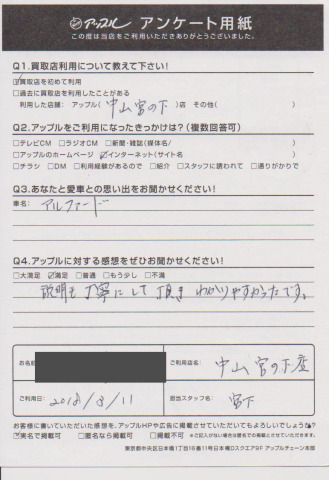 アップル アンケート用紙
この度は当店をご利用いただきありがとうございました。
Q1.買取店利用について教えて下さい!
☑買取店を初めて利用
□過去に買取店を利用したことがある
利用した店舗: アップル( 中山宮の下 )店 その他( )
Q2.アップルをご利用になったきっかけは?(複数回答可)
□テレビCM □ラジオCM □新聞・雑誌(媒体名/ )
□アップルのホームページ ☑インターネット(サイト名 )
□チラシ □DM □利用経験があるので □紹介 □スタッフに誘われて □通りがかりで
Q3.あなたと愛車との思い出をお聞かせください!
車名: アルファード
Q4.アップルに対する感想をぜひお聞かせください!
□大満足 ☑満足 □普通 □もう少し □不満
説明も丁寧にして頂き わかりやすかったです。
お名前
ご利用店名: 中山宮の下店
ご利用日: 2018/3/11
担当スタッフ名: 宮下
お客様に書いていただいた感想を、アップルHPや広告に掲載させていただいてもよろしいでしょうか?
☑実名で掲載可 □匿名なら掲載可 □掲載不可 ※ご記入がない場合は匿名での掲載とさせていただきます。
東京都中央区日本橋1丁目16番11号日本橋Dスクエア9F アップルチェーン本部